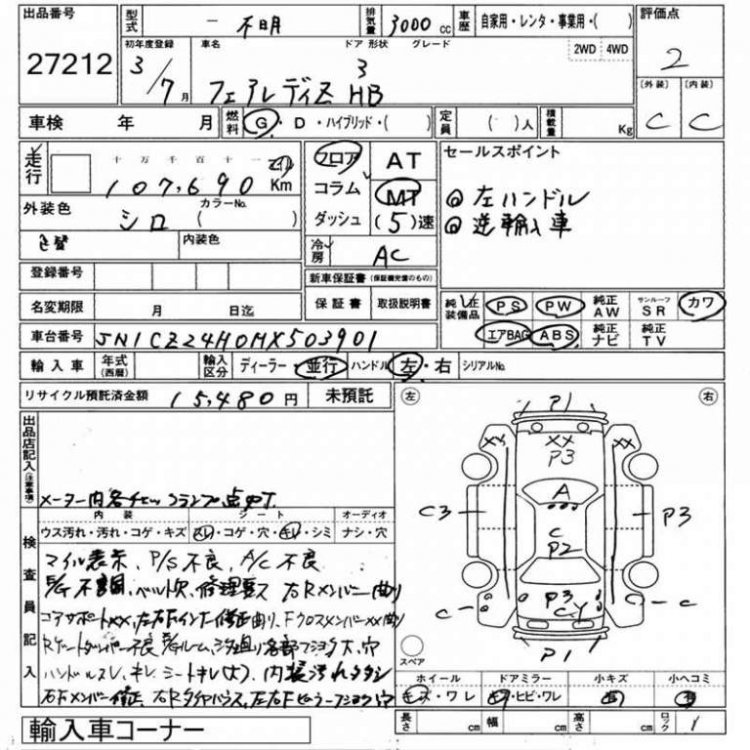 出品番号 27212
型式 - 不明 排気量 3000 cc 車歴 自家用・レンタ・事業用・( )
評価点 2
初年度登録 3/7月 車名 フェアレディZ HB ドア 形状 グレード 3 2WD 4WD
(外装) C (内装) C
車検 年 月 燃料 G・D・ハイブリッド・( ) 定員 ( )人 積載量 Kg
走行 十 万 千 百 十 一 107,690 Km マイル
フロア コラム ダッシュ AT MT (5)速
セールスポイント
◎左ハンドル
◎逆輸入車
外装色 シロ カラーNo. ( )
色替 内装色
冷房 AC
登録番号
新車保証書 (保証継続書のもの)
名変期限 月 日迄
保証書 取扱説明書
純正装備品 PS PW 純正AW サンルーフSR カワ
エアBAG ABS 純正ナビ 純正TV
車台番号 JN1CZ24H0MX503901
輸入車 年式(西暦) 輸入区分 ディーラー・並行 ハンドル 左・右 シリアルNo.
リサイクル預託済金額 15,480円 未預託
出品店記入 (注意事項)
メーター内 チェックランプ点灯
左 右
P1
XX XX XX
P3
A
C3 C P3
P2
P3
C CY C
P1
スペア
内装 シート オーディオ
ウス汚れ・汚れ・コゲ・キズ スレ・コゲ・穴・キレ・シミ ナシ・穴
検査員記入
マイル表示、P/S不良、A/C不良
不調、ベルト 、修理要ス 右Rメンバー曲り
コアサポートXX、左右Fインナー修正曲り、FクロスメンバーXX曲り
Rゲートダンパー不良 ルーム、 各部フショク大、穴
ハンドルスレ、キレ シートキレ(大)、内装汚れ
右Fメンバー修正、右R 、左右Fピラーフショク穴
ホイール ドアミラー 小キズ 小ヘコミ
キズ・ワレ キズ・ヒビ・ワレ あり
長さ cm 幅 cm 高さ cm ロック 1
輸入車コーナー